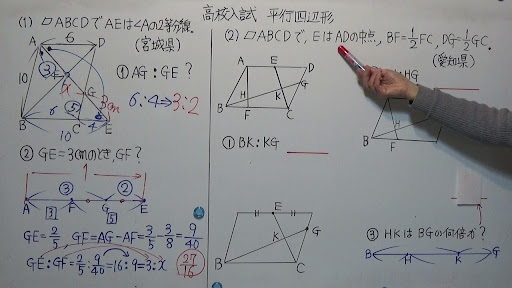 高校入試 平行四辺形
(1) ▱ABCDでAEは∠Aの2等分線。
(宮城県)
A 6 D
③
10
F
x
G
⑤
3cm
6
4
B C E
10
① AG:GE ?
6:4⇒3:2
② GE=3cmのとき, GF ?
1
③ ②
A F G E
3 5
GE=2/5, GF=AG-AF=3/5-3/8=9/40
GE:GF=2/5:9/40=16:9=3:x 27/16
(2) ▱ABCDで, EはADの中点, BF=1/2FC, DG=1/2GC.
(愛知県)
A E D
G
H K
B F C
HG
H
B F
① BK:KG
E
G
K
B C
③ HKはBGの何倍か?
B H K G